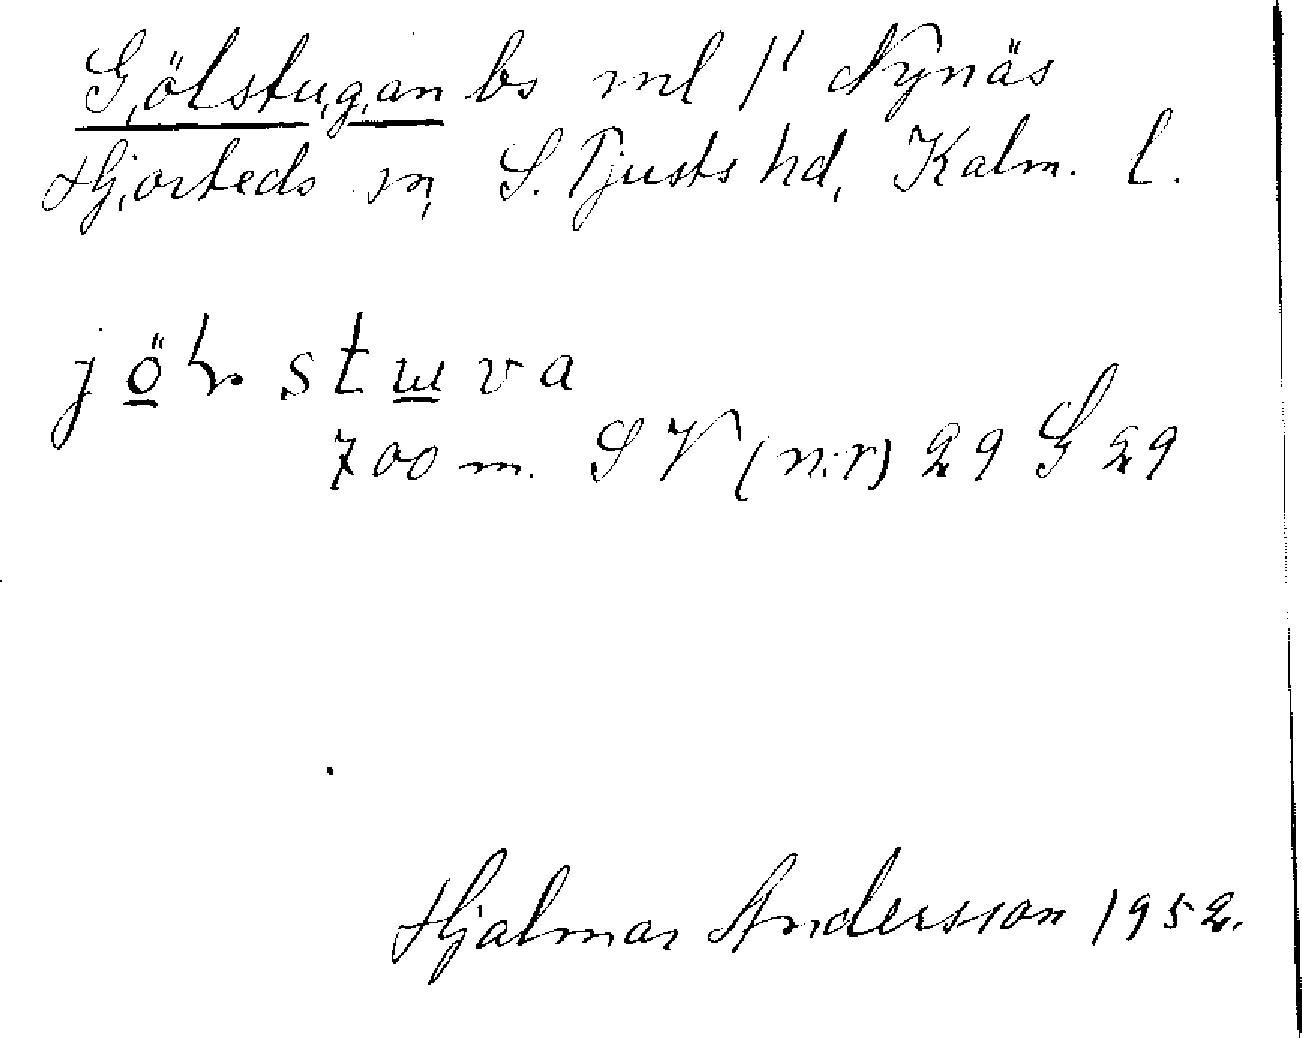 Gölstugan bs ml 1/1 Nynäs
Hjorteds sn, S. Tjusts hd, Kalm. l.
jöl stuva
700 m. SV (n:r) 29 G 29
Hjalmar Andersson 1952.